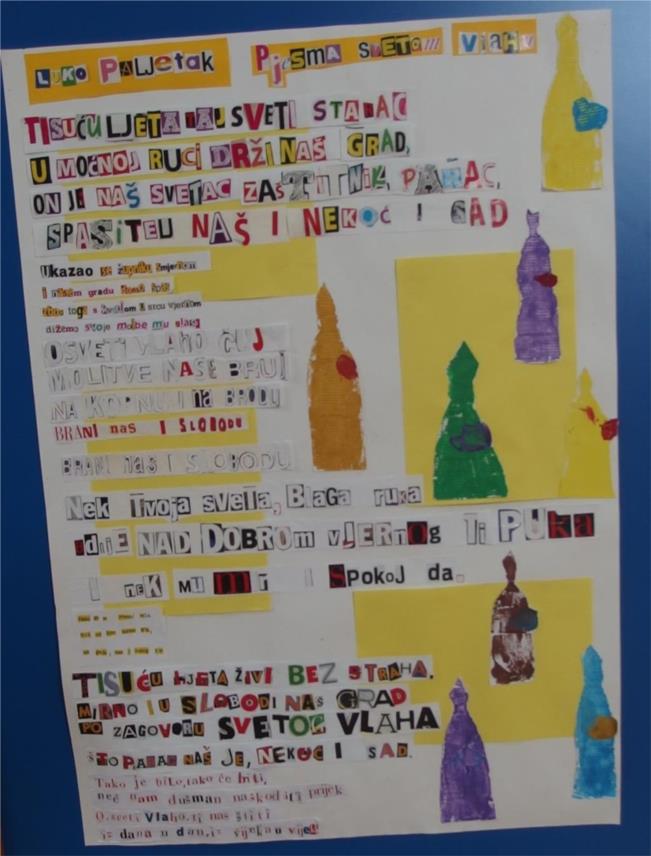 LUKO PALJETAK PJESMA SVETOM VLAHU
TISUĆU LJETA TAJ SVETI STARAC
U MOĆNOJ RUCI DRŽI NAŠ GRAD,
ON JE NAŠ SVETAC ZAŠTITNIK, PARAC,
SPASITELJ NAŠ I NEKOĆ I SAD
Ukazao se župniku Smjernom
i našem gradu
zbog toga s u srcu vjernom
dižemo svoje molbe mu
O SVETI VLAHO ČUJ
MOLITVE NAŠE BRUJ
NA KOPNU I na BRODU
BRANI nas I SLOBODU
BRANI nas I SLOBODU
Nek Tvoja sveta, Blaga ruka
bdije NAD DOBROM vJERnOg Ti PUKA
I neK MU MIR I SPOKOJ da.
TISUĆU LJETA ŽIVI BEZ STRAHA,
MIRNO I U SLOBODI NAŠ GRAD
PO ZAGOVORU SVETOG VLAHA
ŠTO PARAC NAŠ JE, NEKOĆ I SAD.
Tako je bilo, tako će biti,
neć nam dušman naškoditi prijek
O, sveti Vlaho, ti nas štiti
iz dana u dan, iz vijeka u vijek